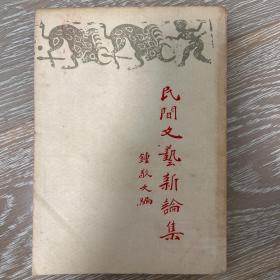 民間文藝新論集
鍾敬文編